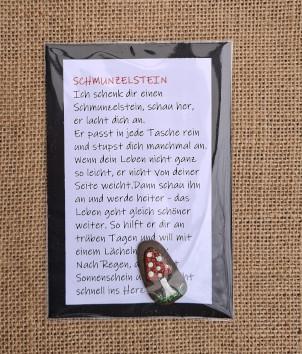 SCHMUNZELSTEIN
Ich schenk dir einen
Schmunzelstein, schau her,
er lacht dich an.
Er passt in jede Tasche rein
und stupst dich manchmal an.
Wenn dein Leben nicht ganz
so leicht, er nicht von deiner
Seite weicht.Dann schau ihn
an und werde heiter - das
Leben geht gleich schöner
weiter. So hilft er dir an
trüben Tagen und will mit
einem Lächeln
Nach Regen, d
Sonnenschein
schnell ins Herz